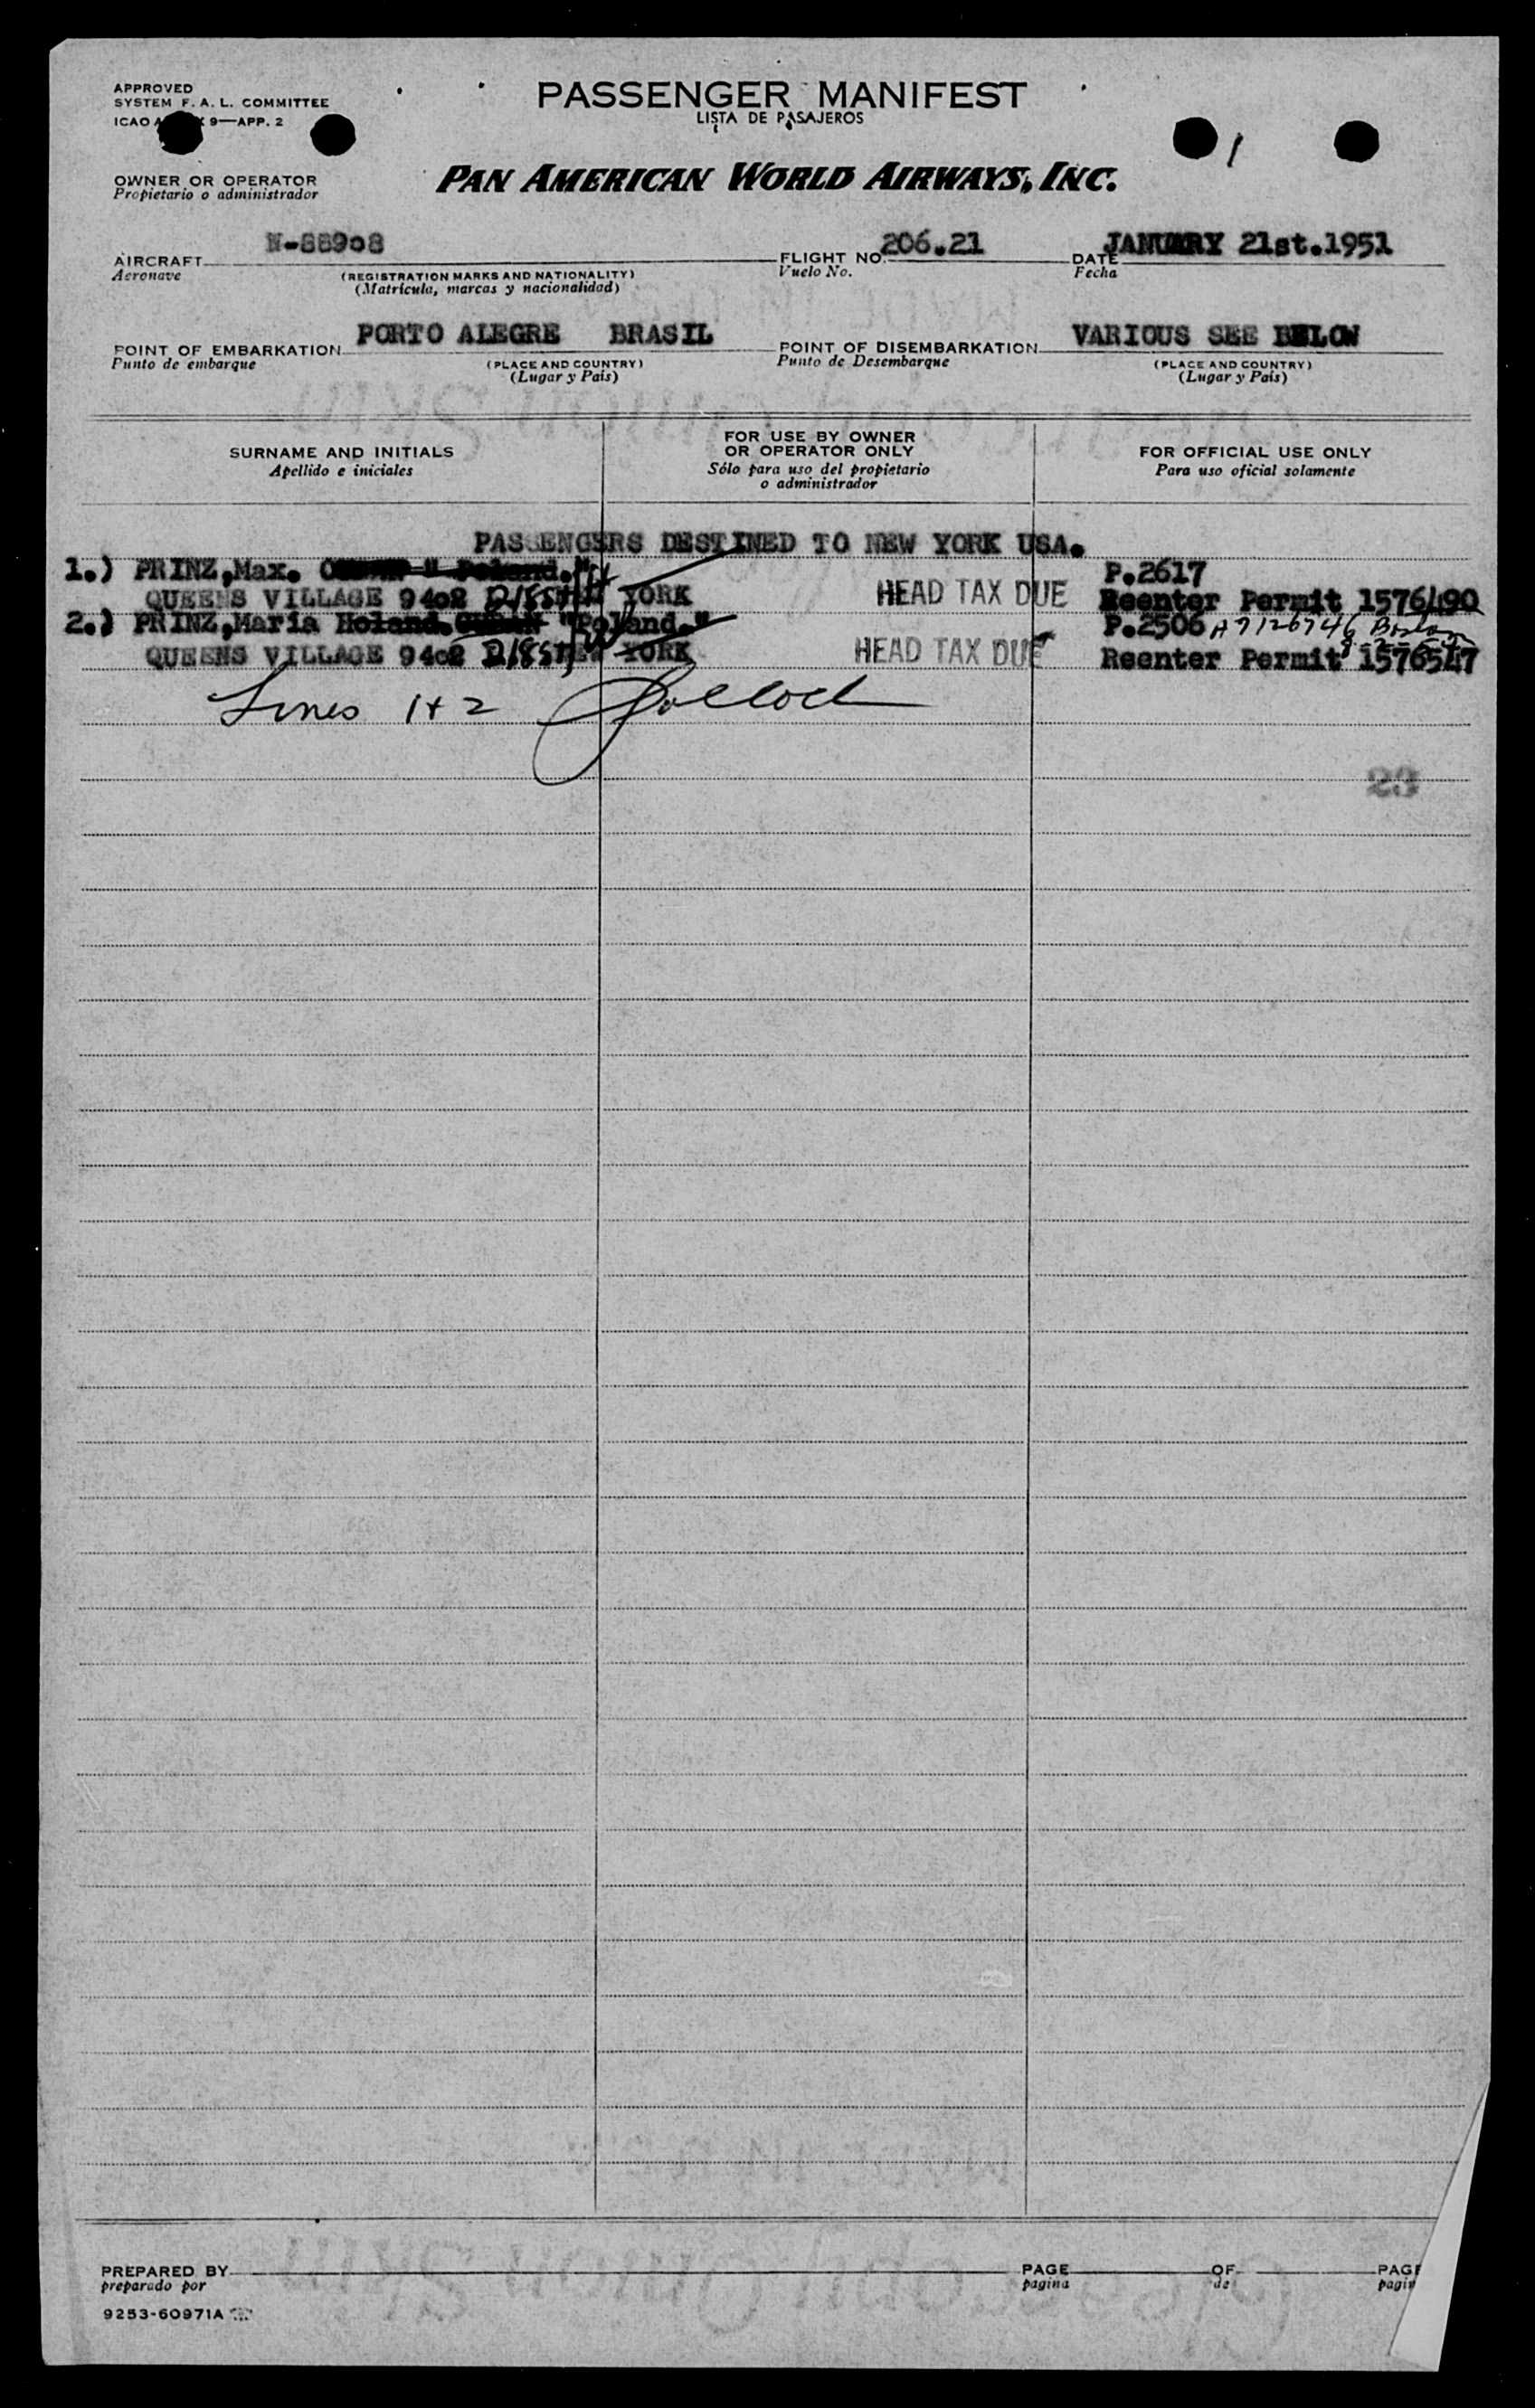 APPROVED
SYSTEM F. A. L. COMMITTEE
ICAO 9—APP. 2
PASSENGER MANIFEST
LISTA DE PASAJEROS
1
OWNER OR OPERATOR
Propietario o administrador
PAN AMERICAN WORLD AIRWAYS, INC.
AIRCRAFT N-88908
Aeronave
(REGISTRATION MARKS AND NATIONALITY)
(Matrícula, marcas y nacionalidad)
FLIGHT NO. 206.21
Vuelo No.
DATE JANUARY 21st.1951
Fecha
POINT OF EMBARKATION PORTO ALEGRE BRASIL
Punto de embarque
(PLACE AND COUNTRY)
(Lugar y País)
POINT OF DISEMBARKATION VARIOUS SEE BELOW
Punto de Desembarque
(PLACE AND COUNTRY)
(Lugar y País)
SURNAME AND INITIALS
Apellido e iniciales
FOR USE BY OWNER
OR OPERATOR ONLY
Sólo para uso del propietario
o administrador
FOR OFFICIAL USE ONLY
Para uso oficial solamente
PASSENGERS DESTINED TO NEW YORK USA.
1.) PRINZ,Max. Poland." P.2617
QUEENS VILLAGE 9402 218ST YORK HEAD TAX DUE Reenter Permit 1576490
2.) PRINZ,Maria Holand. "Poland." P.2506 A7126746
QUEENS VILLAGE 9402 218ST YORK HEAD TAX DUE Reenter Permit 1576547
Lines 1+2
23
PREPARED BY
preparado por
PAGE
pagina
OF
de
PAG
pagin
9253-60971A